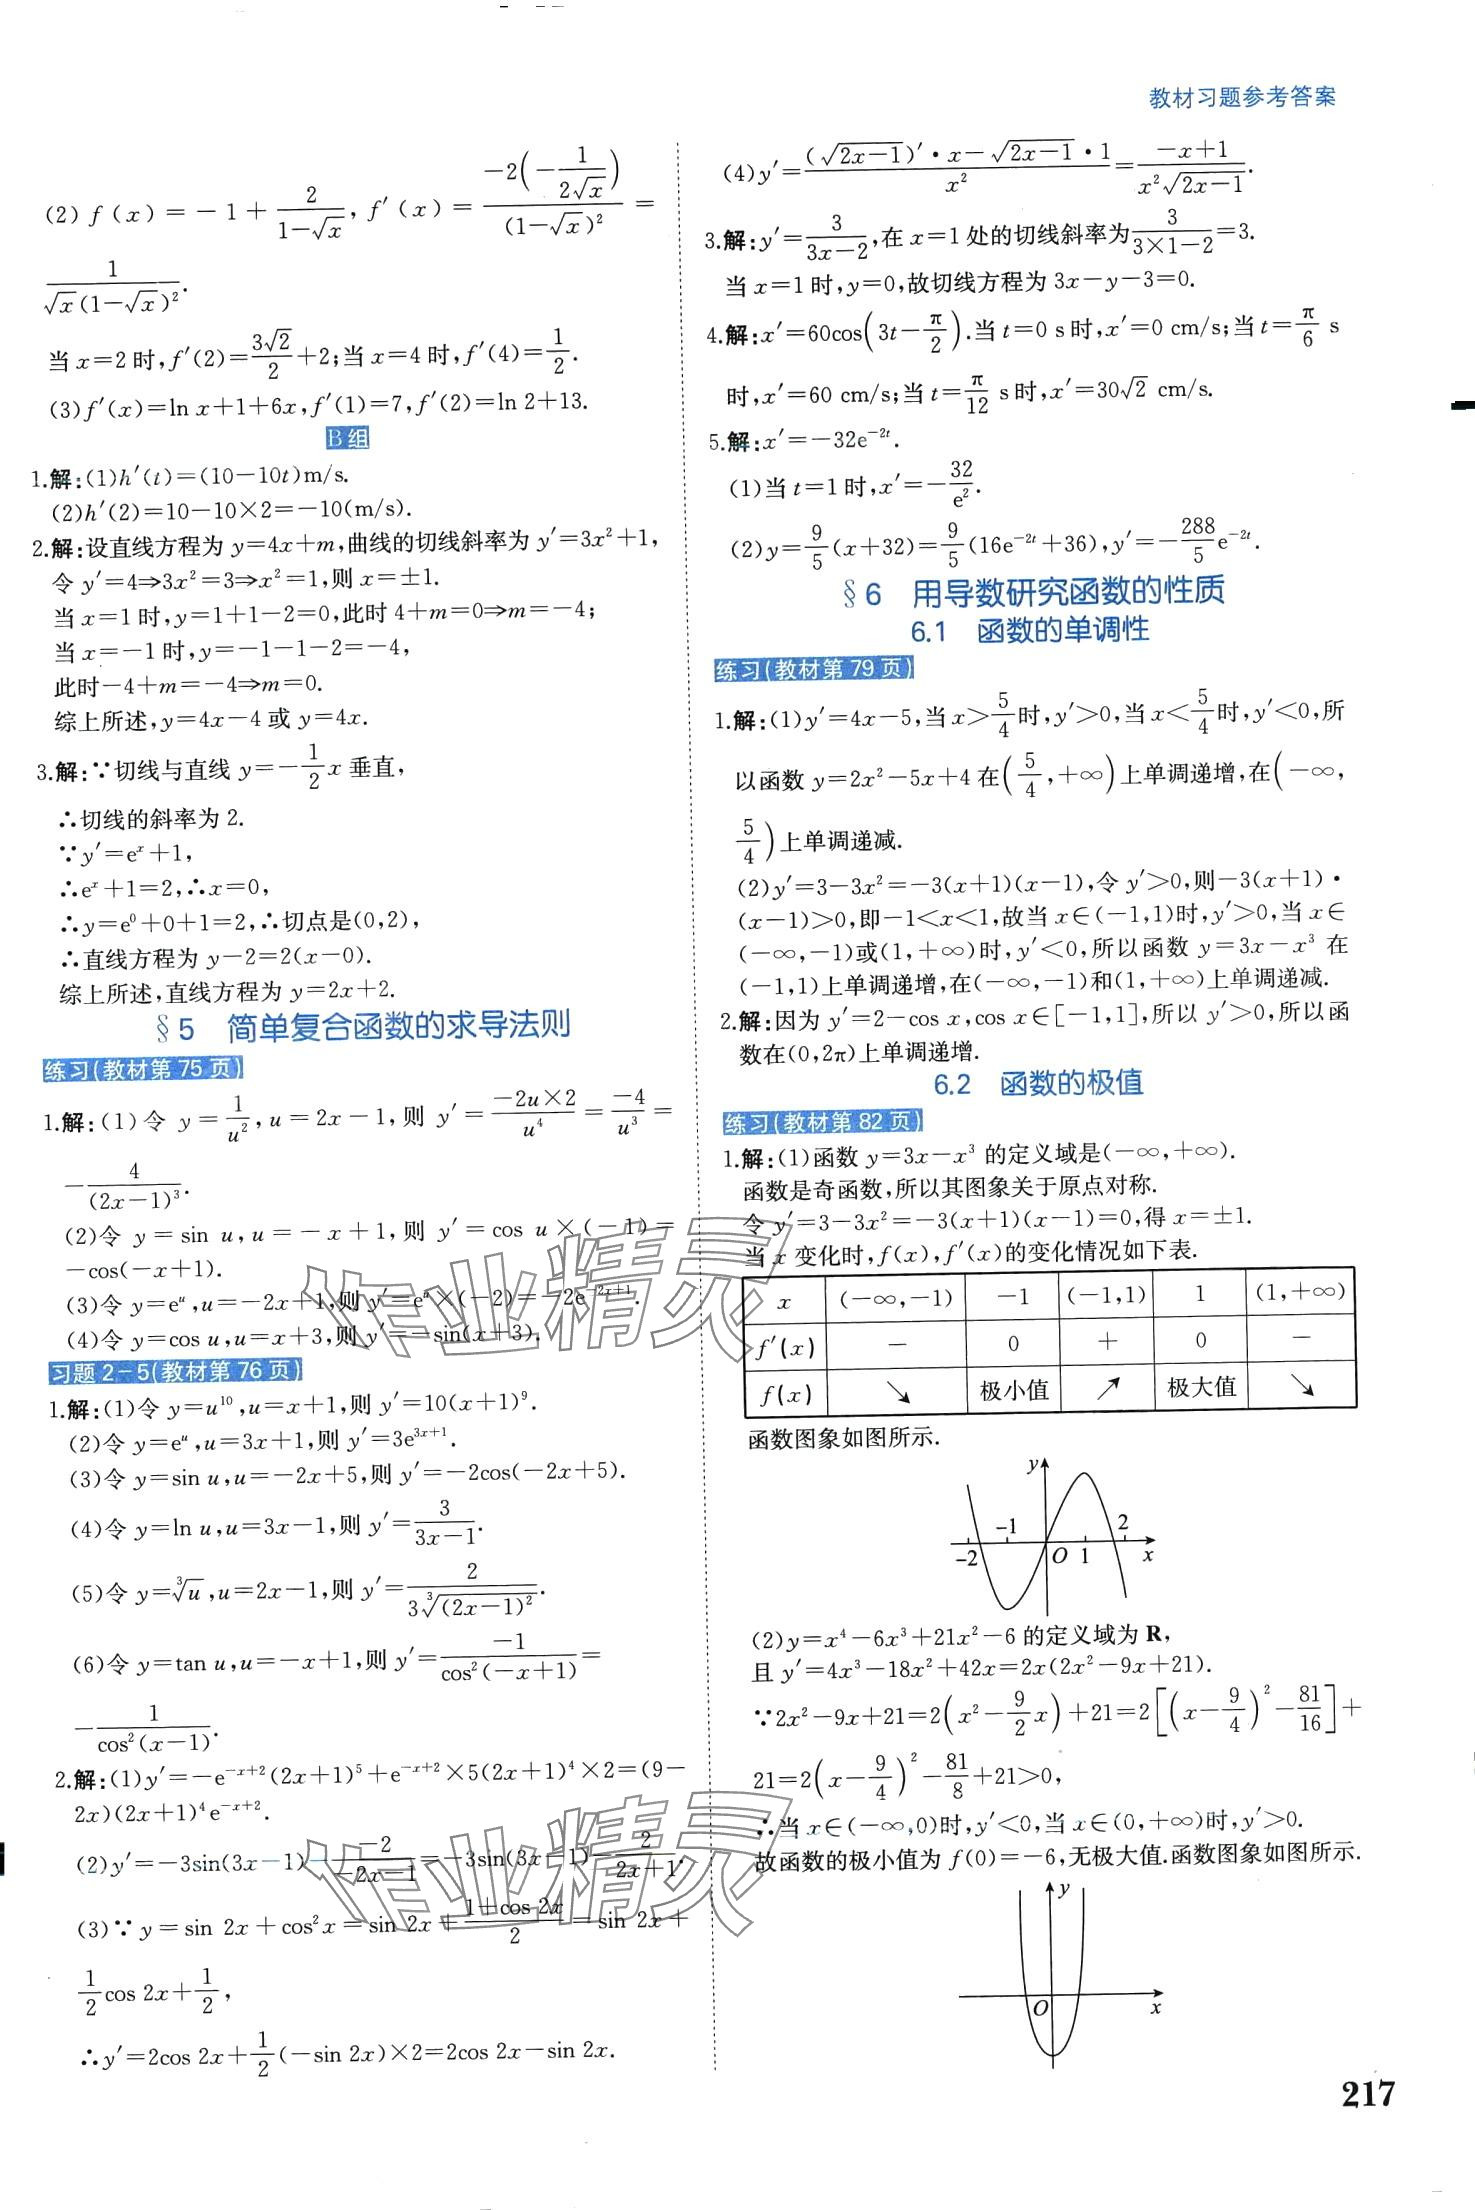 教材习题参考答案
(2) f(x)=-1+\frac{2}{1-\sqrt{x}}, f'(x)=\frac{-2(-\frac{1}{2\sqrt{x}})}{(1-\sqrt{x})^2}=
\frac{1}{\sqrt{x}(1-\sqrt{x})^2}.
当 x=2 时,f'(2)=\frac{3\sqrt{2}}{2}+2;当 x=4 时,f'(4)=\frac{1}{2}.
(3)f'(x)=ln x+1+6x,f'(1)=7,f'(2)=ln 2+13.
B 组
1.解:(1)h'(t)=(10-10t)m/s.
(2)h'(2)=10-10×2=-10(m/s).
2.解:设直线方程为 y=4x+m,曲线的切线斜率为 y'=3x²+1,
令 y'=4⇒3x²=3⇒x²=1,则 x=±1.
当 x=1 时,y=1+1-2=0,此时 4+m=0⇒m=-4;
当 x=-1 时,y=-1-1-2=-4,
此时-4+m=-4⇒m=0.
综上所述,y=4x-4 或 y=4x.
3.解:∵切线与直线 y=-\frac{1}{2}x 垂直,
∴切线的斜率为 2.
∵y'=e^x+1,
∴e^x+1=2,∴x=0,
∴y=e^0+0+1=2,∴切点是(0,2),
∴直线方程为 y-2=2(x-0).
综上所述,直线方程为 y=2x+2.
§5 简单复合函数的求导法则
练习(教材第 75 页)
1.解:(1)令 y=\frac{1}{u^2},u=2x-1,则 y'=\frac{-2u×2}{u^4}=\frac{-4}{u^3}=
-\frac{4}{(2x-1)^3}.
(2)令 y=sin u,u=-x+1,则 y'=cos u×(-1)=
-cos(-x+1).
(3)令 y=e^u,u=-2x+1,则 y'=e^u×(-2)=-2e^{-2x+1}.
(4)令 y=cos u,u=x+3,则 y'=-sin(x+3).
习题 2-5(教材第 76 页)
1.解:(1)令 y=u^{10},u=x+1,则 y'=10(x+1)^9.
(2)令 y=e^u,u=3x+1,则 y'=3e^{3x+1}.
(3)令 y=sin u,u=-2x+5,则 y'=-2cos(-2x+5).
(4)令 y=ln u,u=3x-1,则 y'=\frac{3}{3x-1}.
(5)令 y=\sqrt[3]{u},u=2x-1,则 y'=\frac{2}{3\sqrt[3]{(2x-1)^2}}.
(6)令 y=tan u,u=-x+1,则 y'=\frac{-1}{cos^2(-x+1)}=
-\frac{1}{cos^2(x-1)}.
2.解:(1)y'=-e^{-x+2}(2x+1)^5+e^{-x+2}×5(2x+1)^4×2=(9-
2x)(2x+1)^4e^{-x+2}.
(2)y'=-3sin(3x-1)+\frac{-2}{-2x-1}=-3sin(3x-1)+\frac{2}{2x+1}.
(3)∵y=sin 2x+cos²x=sin 2x+\frac{1+cos 2x}{2}=sin 2x+
\frac{1}{2}cos 2x+\frac{1}{2},
∴y'=2cos 2x+\frac{1}{2}(-sin 2x)×2=2cos 2x-sin 2x.
(4)y'=\frac{(\sqrt{2x-1})'·x-\sqrt{2x-1}·1}{x^2}=\frac{-x+1}{x^2\sqrt{2x-1}}.
3.解:y'=\frac{3}{3x-2},在 x=1 处的切线斜率为\frac{3}{3×1-2}=3.
当 x=1 时,y=0,故切线方程为 3x-y-3=0.
4.解:x'=60cos(3t-\frac{π}{2}).当 t=0 s 时,x'=0 cm/s;当 t=\frac{π}{6} s
时,x'=60 cm/s;当 t=\frac{π}{12} s 时,x'=30\sqrt{2} cm/s.
5.解:x'=-32e^{-2t}.
(1)当 t=1 时,x'=-\frac{32}{e^2}.
(2)y=\frac{9}{5}(x+32)=\frac{9}{5}(16e^{-2t}+36),y'=-\frac{288}{5}e^{-2t}.
§6 用导数研究函数的性质
6.1 函数的单调性
练习(教材第 79 页)
1.解:(1)y'=4x-5,当 x>\frac{5}{4}时,y'>0,当 x<\frac{5}{4}时,y'<0,所
以函数 y=2x²-5x+4 在(\frac{5}{4},+∞)上单调递增,在(-∞,
\frac{5}{4})上单调递减.
(2)y'=3-3x²=-3(x+1)(x-1),令 y'>0,则-3(x+1)·
(x-1)>0,即-1<x<1,故当 x∈(-1,1)时,y'>0,当 x∈
(-∞,-1)或(1,+∞)时,y'<0,所以函数 y=3x-x³ 在
(-1,1)上单调递增,在(-∞,-1)和(1,+∞)上单调递减.
2.解:因为 y'=2-cos x,cos x∈[-1,1],所以 y'>0,所以函
数在(0,2π)上单调递增.
6.2 函数的极值
练习(教材第 82 页)
1.解:(1)函数 y=3x-x³ 的定义域是(-∞,+∞).
函数是奇函数,所以其图象关于原点对称.
令 y'=3-3x²=-3(x+1)(x-1)=0,得 x=±1.
当 x 变化时,f(x),f'(x)的变化情况如下表.
x (-∞,-1) -1 (-1,1) 1 (1,+∞)
f'(x) - 0 + 0 -
f(x) ↘ 极小值 ↗ 极大值 ↘
函数图象如图所示.
y
-1 2
-2 O 1 x
(2)y=x⁴-6x³+21x²-6 的定义域为 R,
且 y'=4x³-18x²+42x=2x(2x²-9x+21).
∵2x²-9x+21=2(x²-\frac{9}{2}x)+21=2[(x-\frac{9}{4})²-\frac{81}{16}]+
21=2(x-\frac{9}{4})²-\frac{81}{8}+21>0,
∴当 x∈(-∞,0)时,y'<0,当 x∈(0,+∞)时,y'>0.
故函数的极小值为 f(0)=-6,无极大值.函数图象如图所示.
y
O x
217
作业精灵
作业精灵